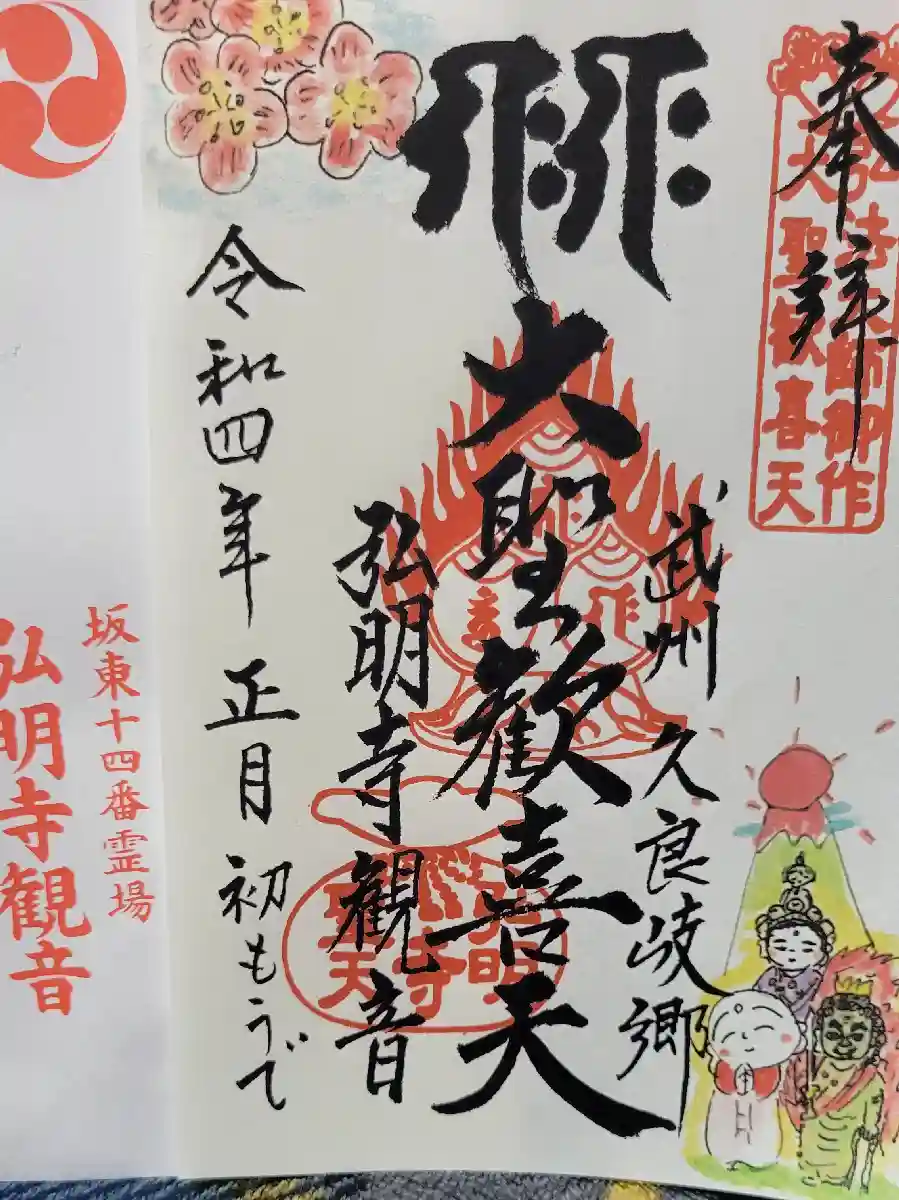 奉拝
弘法大師御作
大聖歓喜天
武州 久良岐郷
大聖歓喜天
弘明寺観音
令和四年 正月 初もうで
坂東十四番霊場
弘明寺観音